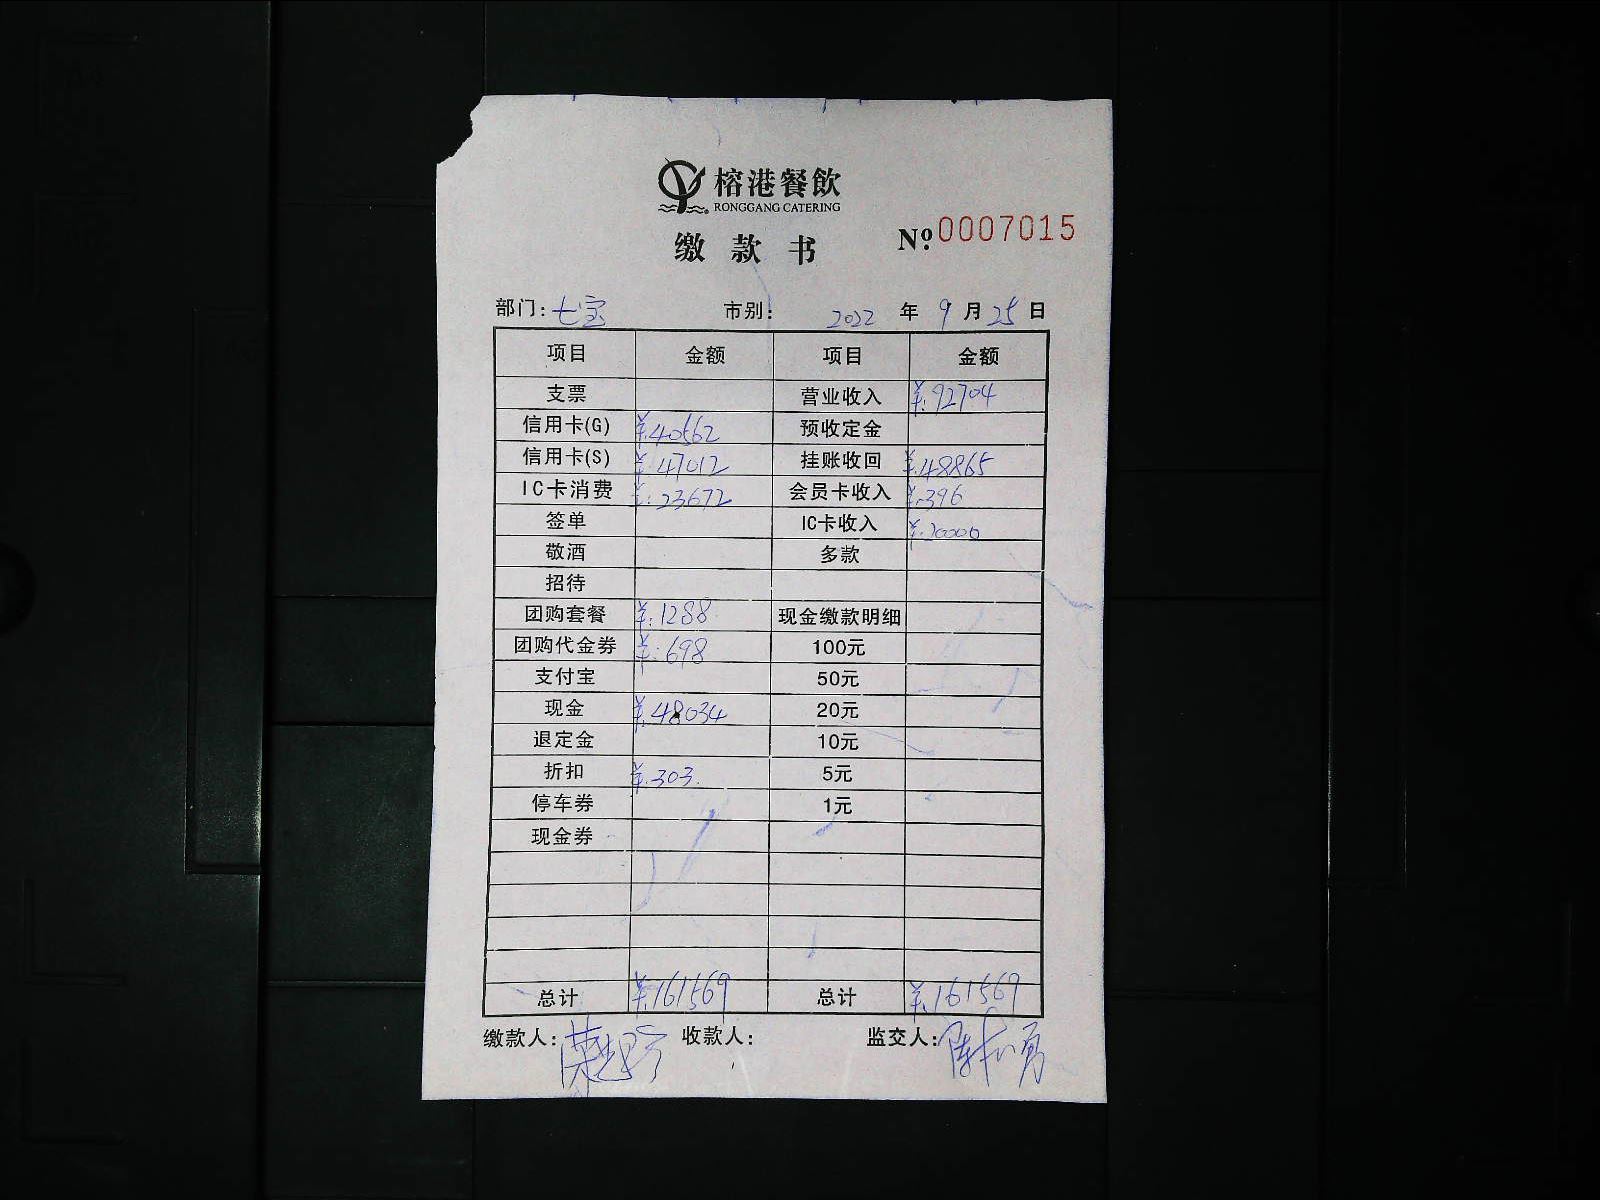 榕港餐飲
RONGGANG CATERING
缴款书 №0007015
部门: 七宝 市别: 2022 年 9 月 25 日
项目 金额 项目 金额
支票 营业收入 ¥:92704
信用卡(G) ¥:40562 预收定金
信用卡(S) ¥:47012 挂账收回 ¥:48865
IC卡消费 ¥:23672 会员卡收入 ¥:396
签单 IC卡收入 ¥:20000
敬酒 多款
招待
团购套餐 ¥:1288 现金缴款明细
团购代金券 ¥:698 100元
支付宝 50元
现金 ¥:48034 20元
退定金 10元
折扣 ¥:303 5元
停车券 1元
现金券
总计 ¥:161569 总计 ¥:161569
缴款人: 收款人: 监交人: